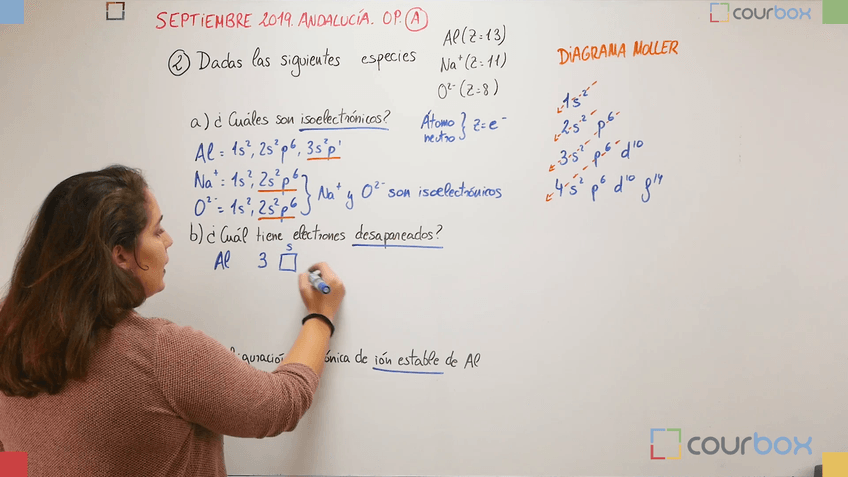 SEPTIEMBRE 2019. ANDALUCÍA. OP. A
courbox
2 Dadas las siguientes especies
Al (Z=13)
Na⁺ (Z=11)
O²⁻ (Z=8)
DIAGRAMA MOLLER
1s²
2s² p⁶
3s² p⁶ d¹⁰
4s² p⁶ d¹⁰ f¹⁴
a) ¿Cuáles son isoelectrónicos?
Átomo neutro } Z=e⁻
Al = 1s², 2s²p⁶, 3s²p¹
Na⁺ = 1s², 2s²p⁶
O²⁻ = 1s², 2s²p⁶
} Na⁺ y O²⁻ son isoelectrónicos
b) ¿Cuál tiene electrones desapareados?
s
Al 3
de ión estable de Al
courbox